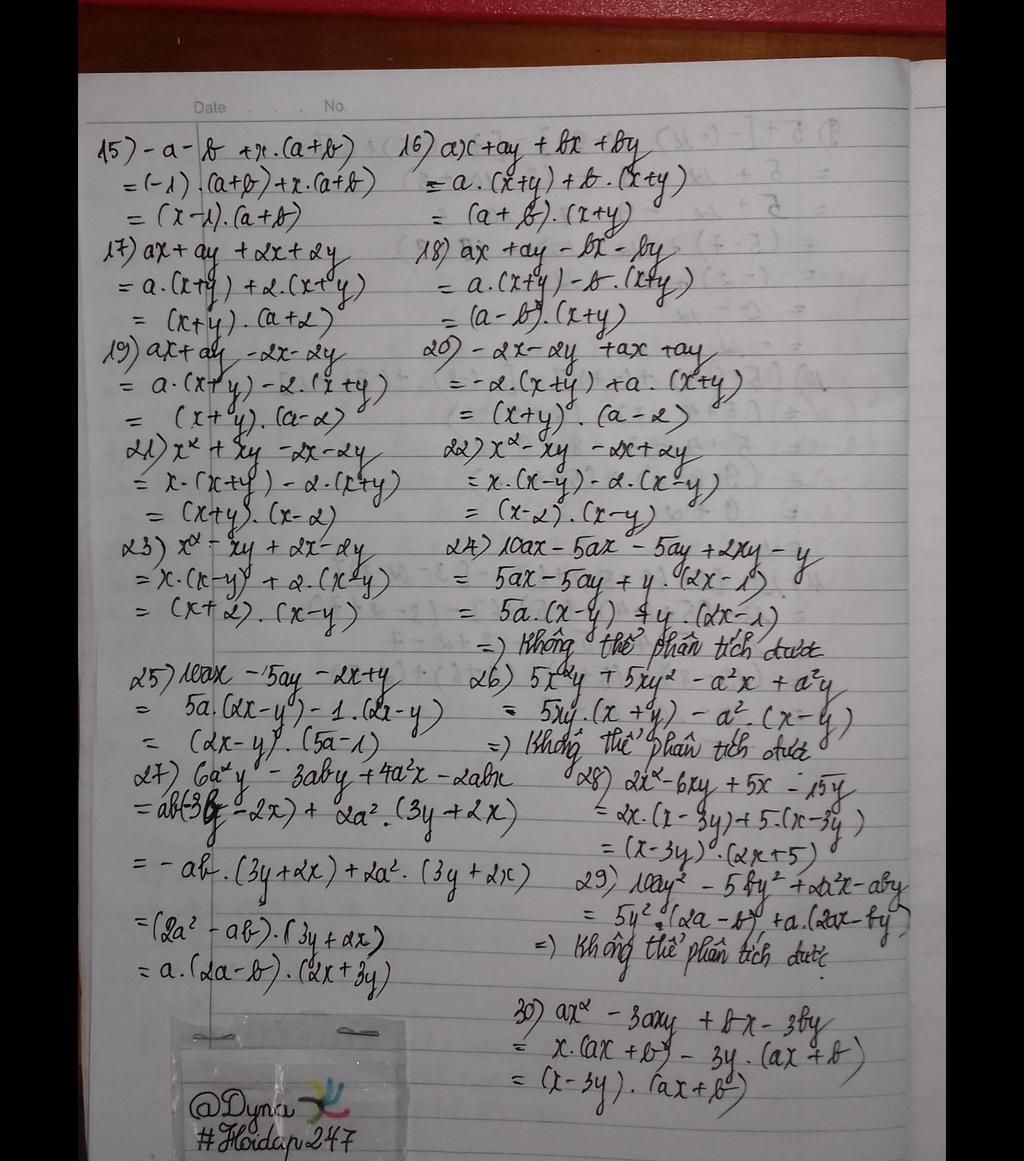 Date . . . No.
15) -a-b +x.(a+b)
=(-1).(a+b)+x.(a+b)
= (x-1).(a+b)
16) ax+ay + bx + by
= a.(x+y) + b.(x+y)
= (a + b).(x+y)
17) ax+ay +2x+2y
= a.(x+y) +2.(x+y)
= (x+y).(a+2)
18) ax +ay - bx - by
= a.(x+y) - b.(x+y)
= (a - b).(x+y)
19) ax+ay -2x-2y
= a.(x+y) -2.(x+y)
= (x+y).(a-2)
20) -2x-2y +ax +ay
= -2.(x+y) +a.(x+y)
= (x+y).(a-2)
21) x² + xy -2x-2y
= x.(x+y) - 2.(x+y)
= (x+y).(x-2)
22) x² - xy - 2x+2y
= x.(x-y) - 2.(x-y)
= (x-2).(x-y)
23) x² - xy + 2x-2y
= x.(x-y) + 2.(x-y)
= (x+2).(x-y)
24) 10ax - 5ax - 5ay +2xy - y
= 5ax-5ay + y.(2x-1)
= 5a.(x-y) + y.(2x-1)
=) Không thể phân tích được
25) 10ax - 5ay - 2x+y
= 5a.(2x-y) - 1.(2x-y)
= (2x-y).(5a-1)
26) 5x²y + 5xy² - a²x + a²y
= 5xy.(x+y) - a².(x-y)
=) Không thể phân tích được
27) 6a²y - 3aby +4a²x -2abx
= ab(-3y -2x) + 2a².(3y+2x)
= -ab.(3y+2x)+2a².(3y+2x)
=(2a² -ab).(3y+2x)
= a.(2a-b).(2x+3y)
28) 2x²-6xy + 5x - 15y
= 2x.(x-3y)+5.(x-3y)
= (x-3y).(2x+5)
29) 10ay² - 5by² +2a²x-aby
= 5y².(2a-b) +a.(2ax-by)
=) Không thể phân tích được
30) ax² - 3axy + bx - 3by
= x.(ax+b) - 3y.(ax+b)
= (x-3y).(ax+b)
@Dyna
#Hoidap247